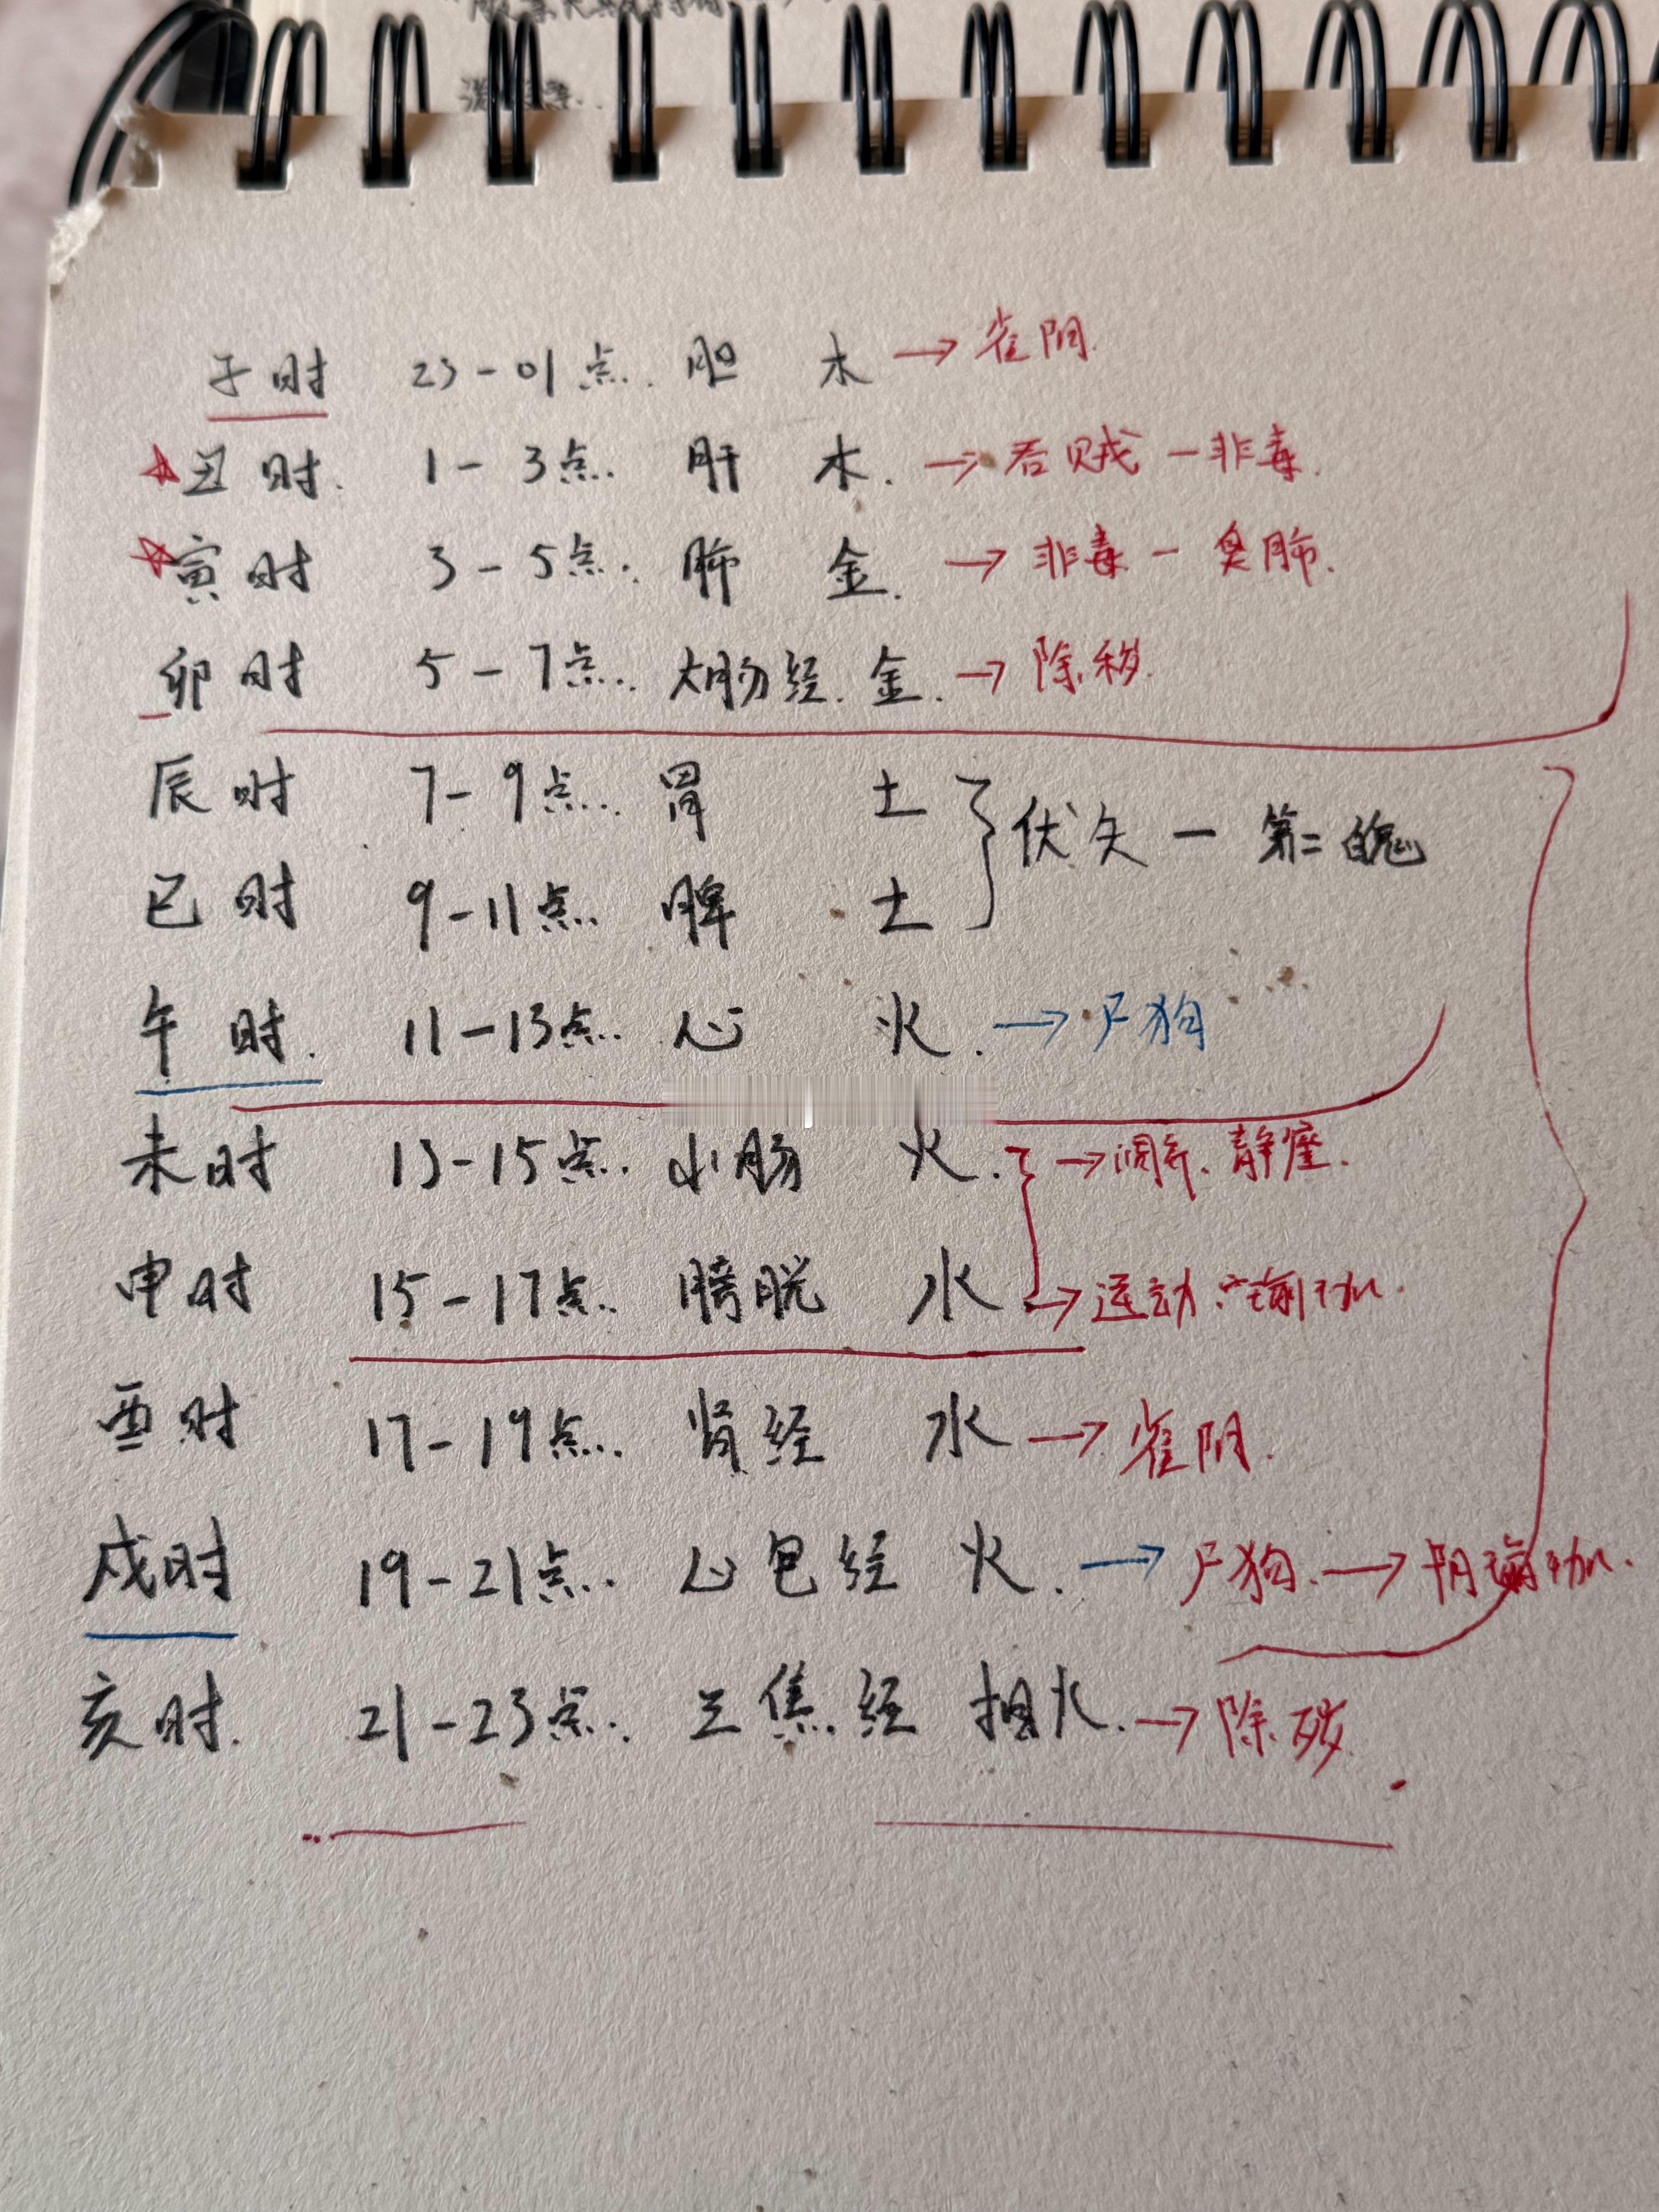 子时 23-01点. 胆 木 → 雀阴.
丑时. 1-3点. 肝 木. → 吞贼 - 非毒.
寅时 3-5点. 肺 金. → 非毒 - 臭肺.
卯时 5-7点. 大肠经. 金. → 除秽.
辰时 7-9点. 胃 土
伏矢 - 第二魄
巳时 9-11点. 脾 土
午时. 11-13点. 心 火. → 尸狗
未时 13-15点. 小肠 火. → 调养、静
申时 15-17点. 膀胱 水 → 运动
酉时 17-19点. 肾经 水 → 雀阴.
戌时 19-21点. 心包经 火. → 尸狗. → 阴瑜伽.
亥时. 21-23点. 三焦经 相火. → 除